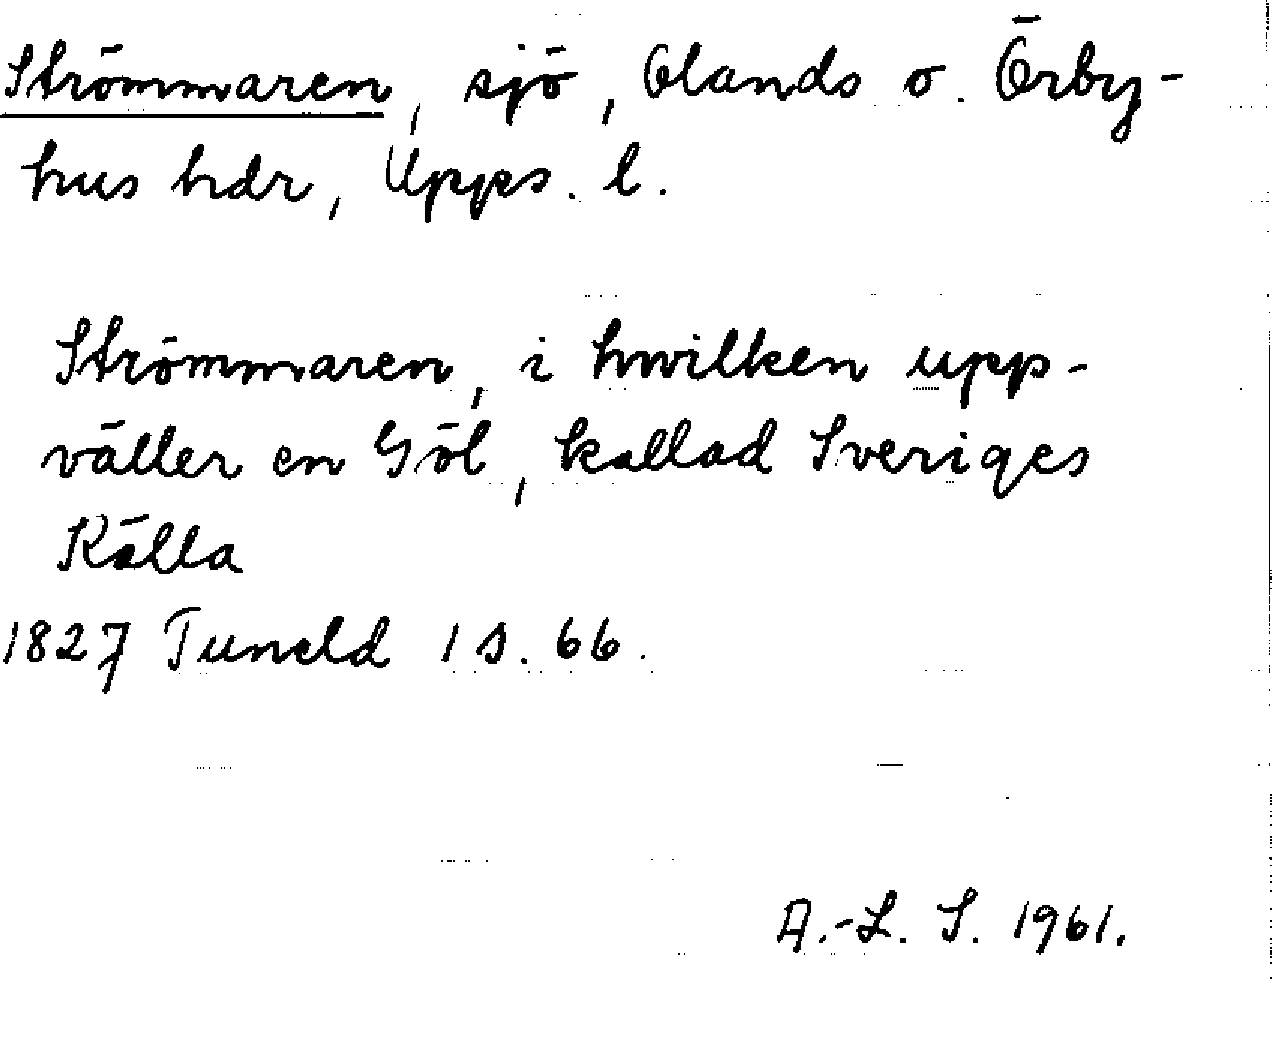 Strömmaren, sjö, Olands o. Örby-
hus hdr, Upps. l.
Strömmaren, i hwilken upp-
väller en Göl, kallad Sveriges
Källa
1827 Tuneld 1 s. 66.
A.-L. S. 1961.